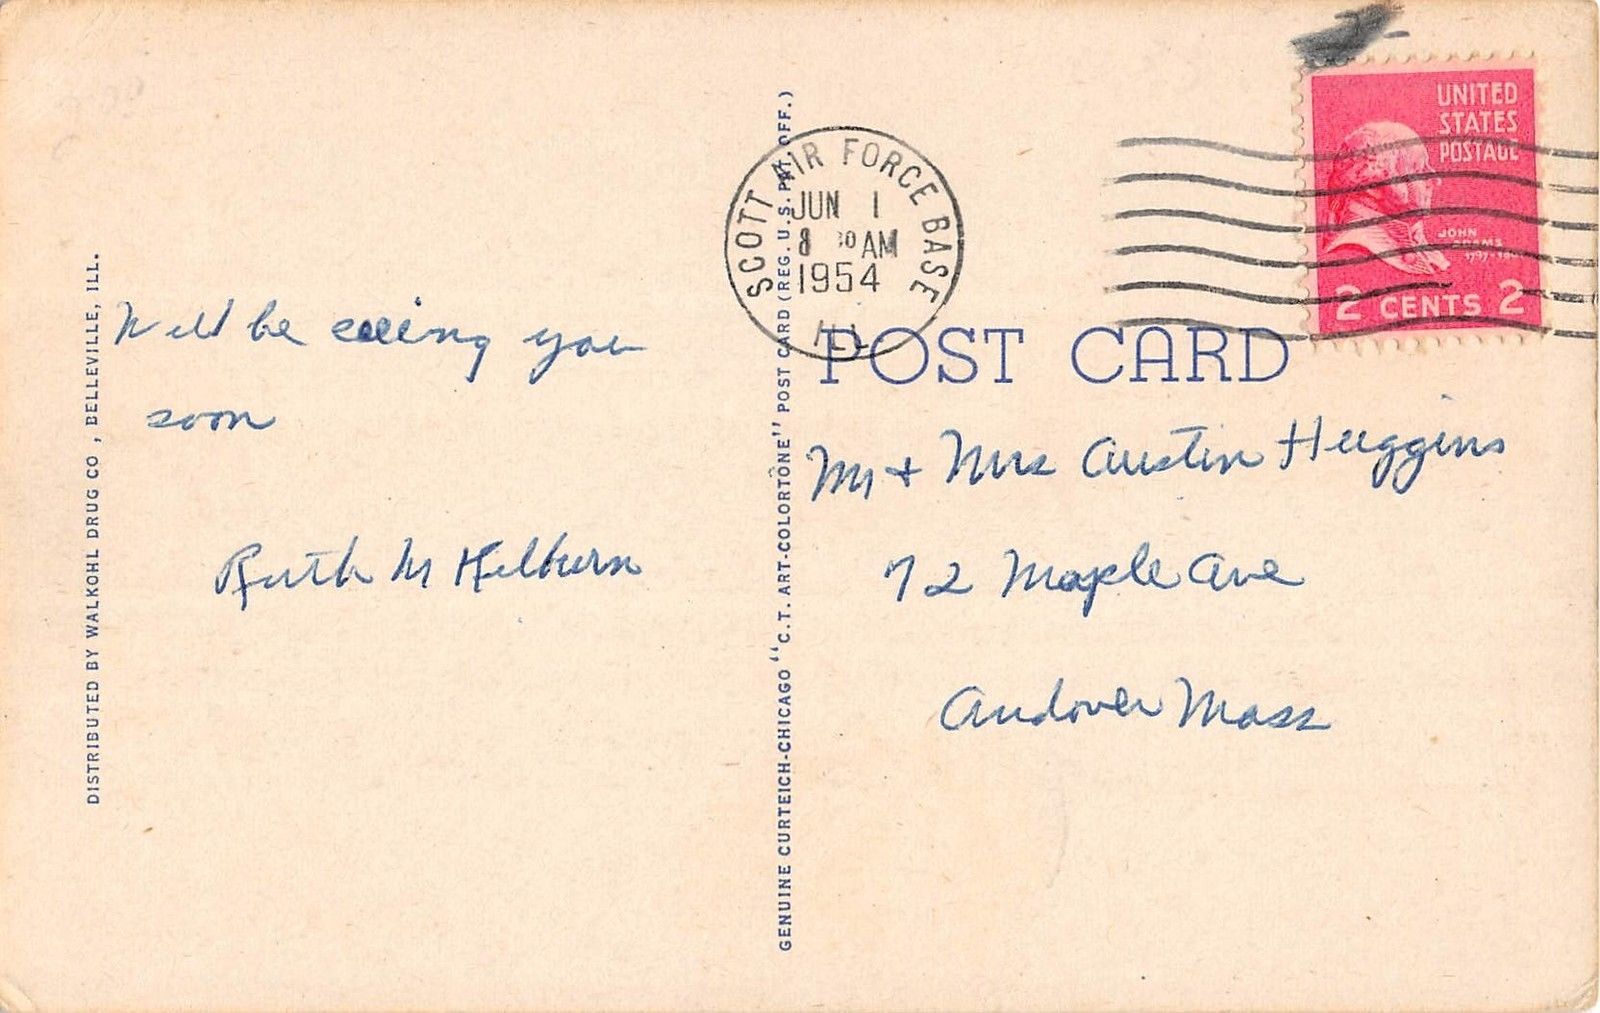 DISTRIBUTED BY WALKOHL DRUG CO., BELLEVILLE, ILL.
Will be seeing you
soon
Ruth M Kilburn
GENUINE CURTEICH-CHICAGO "C.T. ART-COLORTONE" POST CARD (REG. U.S. PAT. OFF.)
SCOTT AIR FORCE BASE
JUN 1
8 30 AM
1954
ILL
UNITED
STATES
POSTAGE
JOHN
ADAMS
2 CENTS 2
POST CARD
Mr + Mrs Austin Huggins
72 Maple Ave
Andover Mass